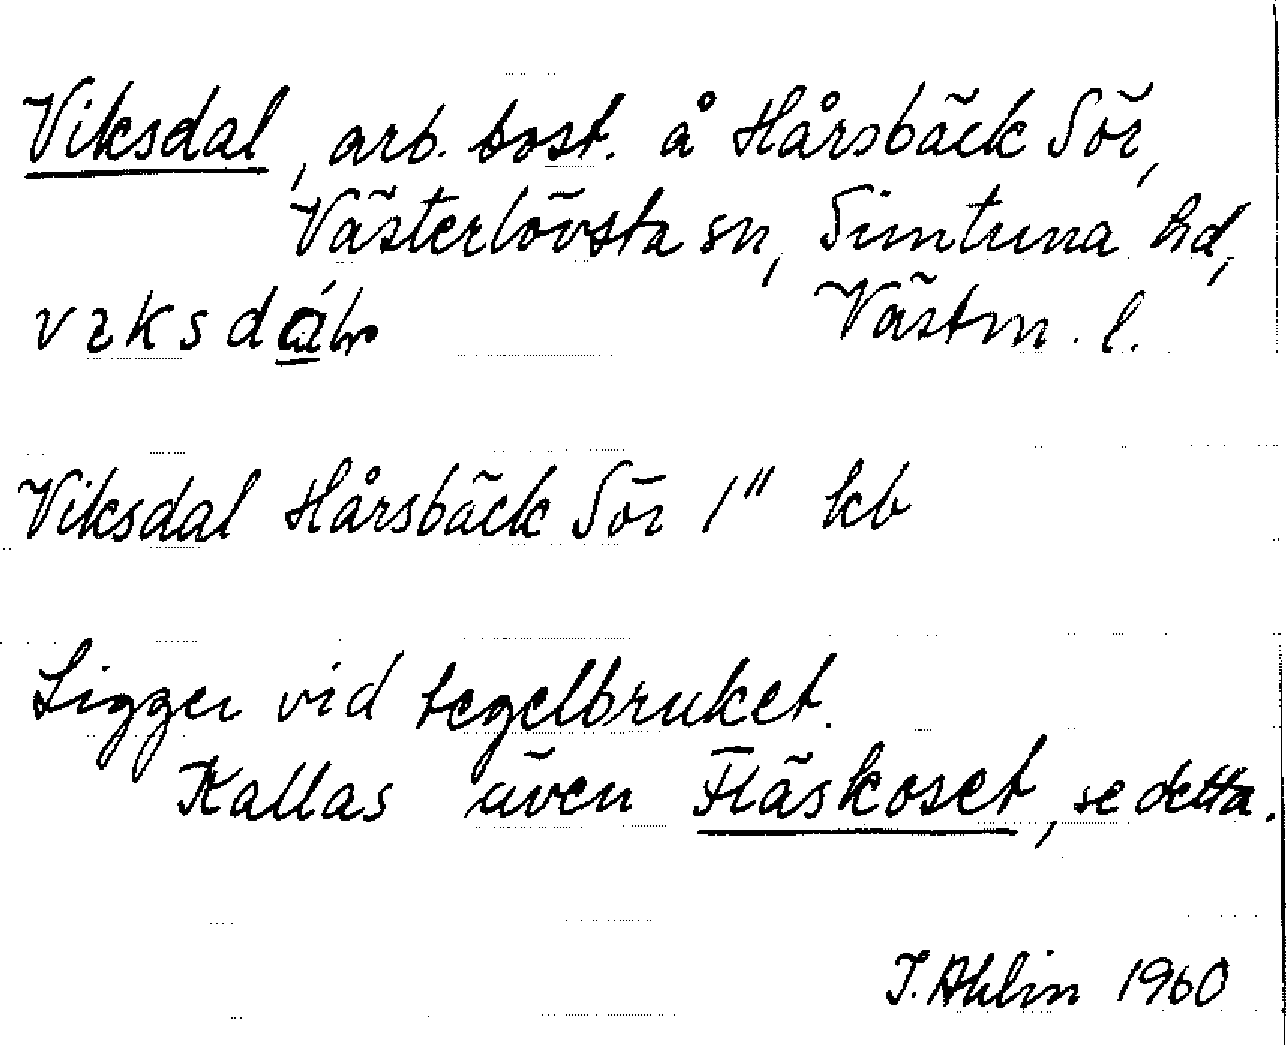 Viksdal, arb. bost. å Hårsbäck Sör,
Västerlövsta sn, Simtuna hd,
Västm. l.
Viksdal Hårsbäck Sör 1" kb
Ligger vid tegelbruket.
Kallas även Fläskoset, se detta.
I. Ahlin 1960